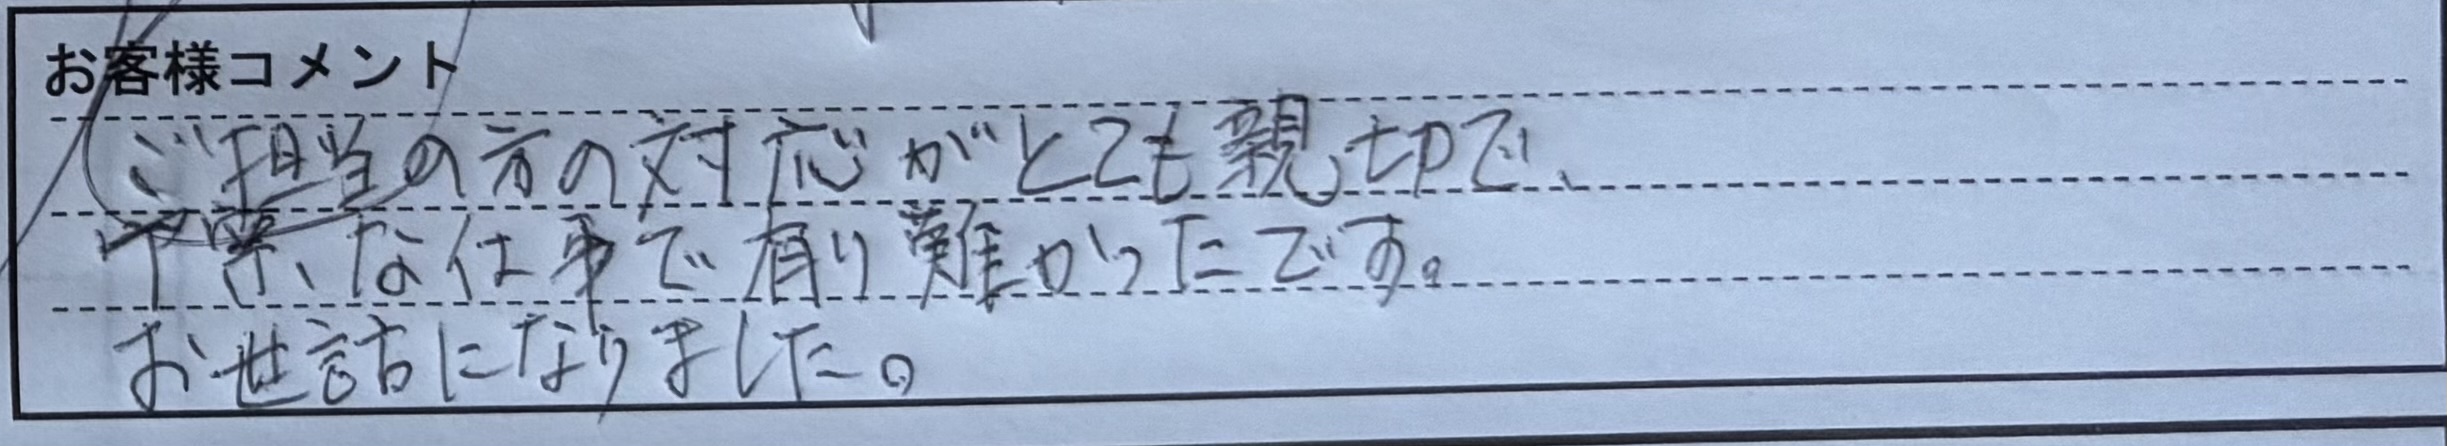 お客様コメント
ご担当の方の対応がとても親切で、
丁寧な仕事で有り難かったです。
お世話になりました。